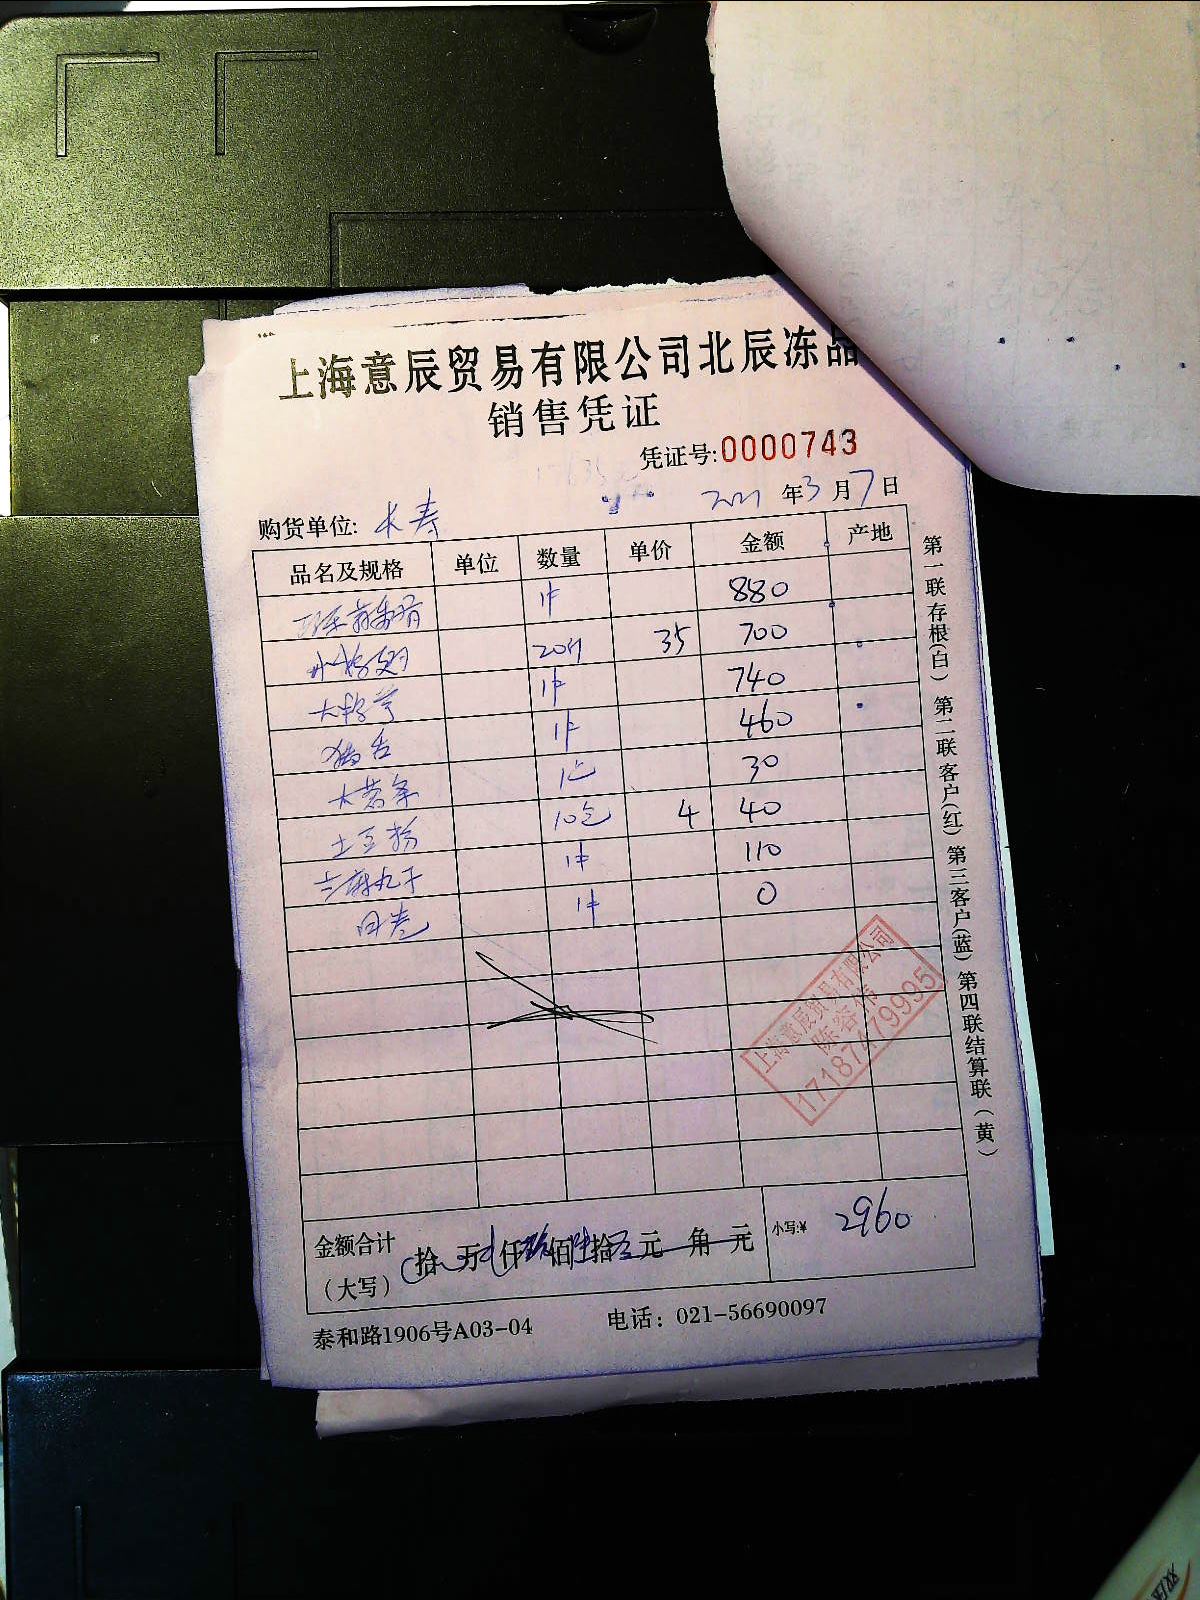 上海意辰贸易有限公司北辰冻品
销售凭证
凭证号:0000743
2021 年 3 月 7 日
购货单位: 长寿
品名及规格 单位 数量 单价 金额 产地
1件 880
20斤 35 700
大鸭 1件 740
猪舌 1件 460
大薯条 1包 30
土豆粉 10包 4 40
丸子 1件 110
1件 0
上海意辰贸易有限公司
陈容伟
17187479995
金额合计 拾 万 仟 玖 佰 陆 拾 元 角 元 小写:¥ 2960
（大写）
泰和路1906号A03-04 电话：021-56690097
第一联存根(白) 第二联客户(红) 第三客户(蓝) 第四联结算联（黄）